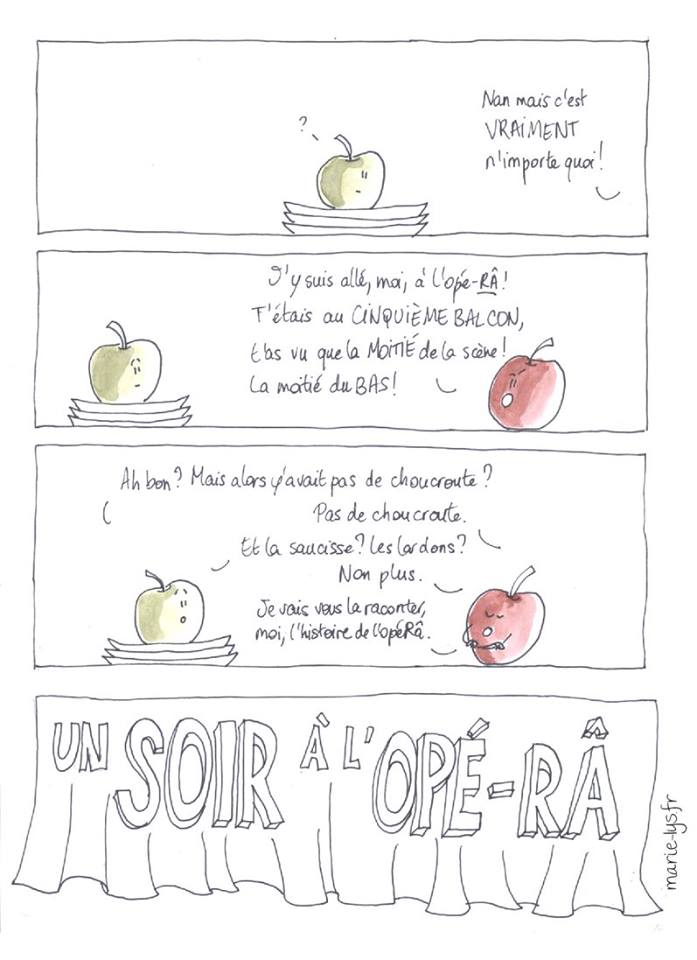 ?
Nan mais c'est
VRAIMENT
n'importe quoi!
J'y suis allé, moi, à l'opé-RÂ!
T'étais au CINQUIÈME BALCON,
t'as vu que la MOITIÉ de la scène!
La moitié du BAS!
Ah bon? Mais alors y'avait pas de choucroute?
Pas de choucroute.
Et la saucisse? Les lardons?
Non plus.
Je vais vous la raconter,
moi, l'histoire de l'opéRâ.
UN SOIR À L'OPÉ-RÂ
marie-lys.fr